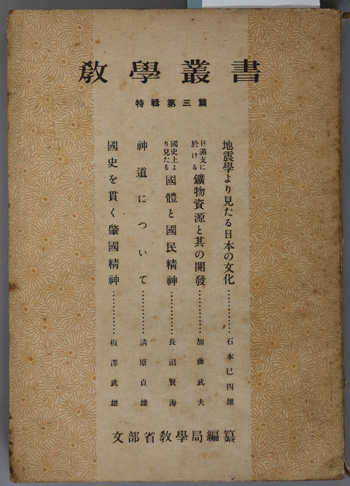 教學叢書
特輯第三篇
地震學より見たる日本の文化…………石本巳四雄
日滿支に於ける鑛物資源と其の開發…………加藤武夫
國史上より見たる國體と國民精神…………長沼賢海
神道について…………清原貞雄
國史を貫く肇國精神…………板澤武雄
文部省教學局編纂